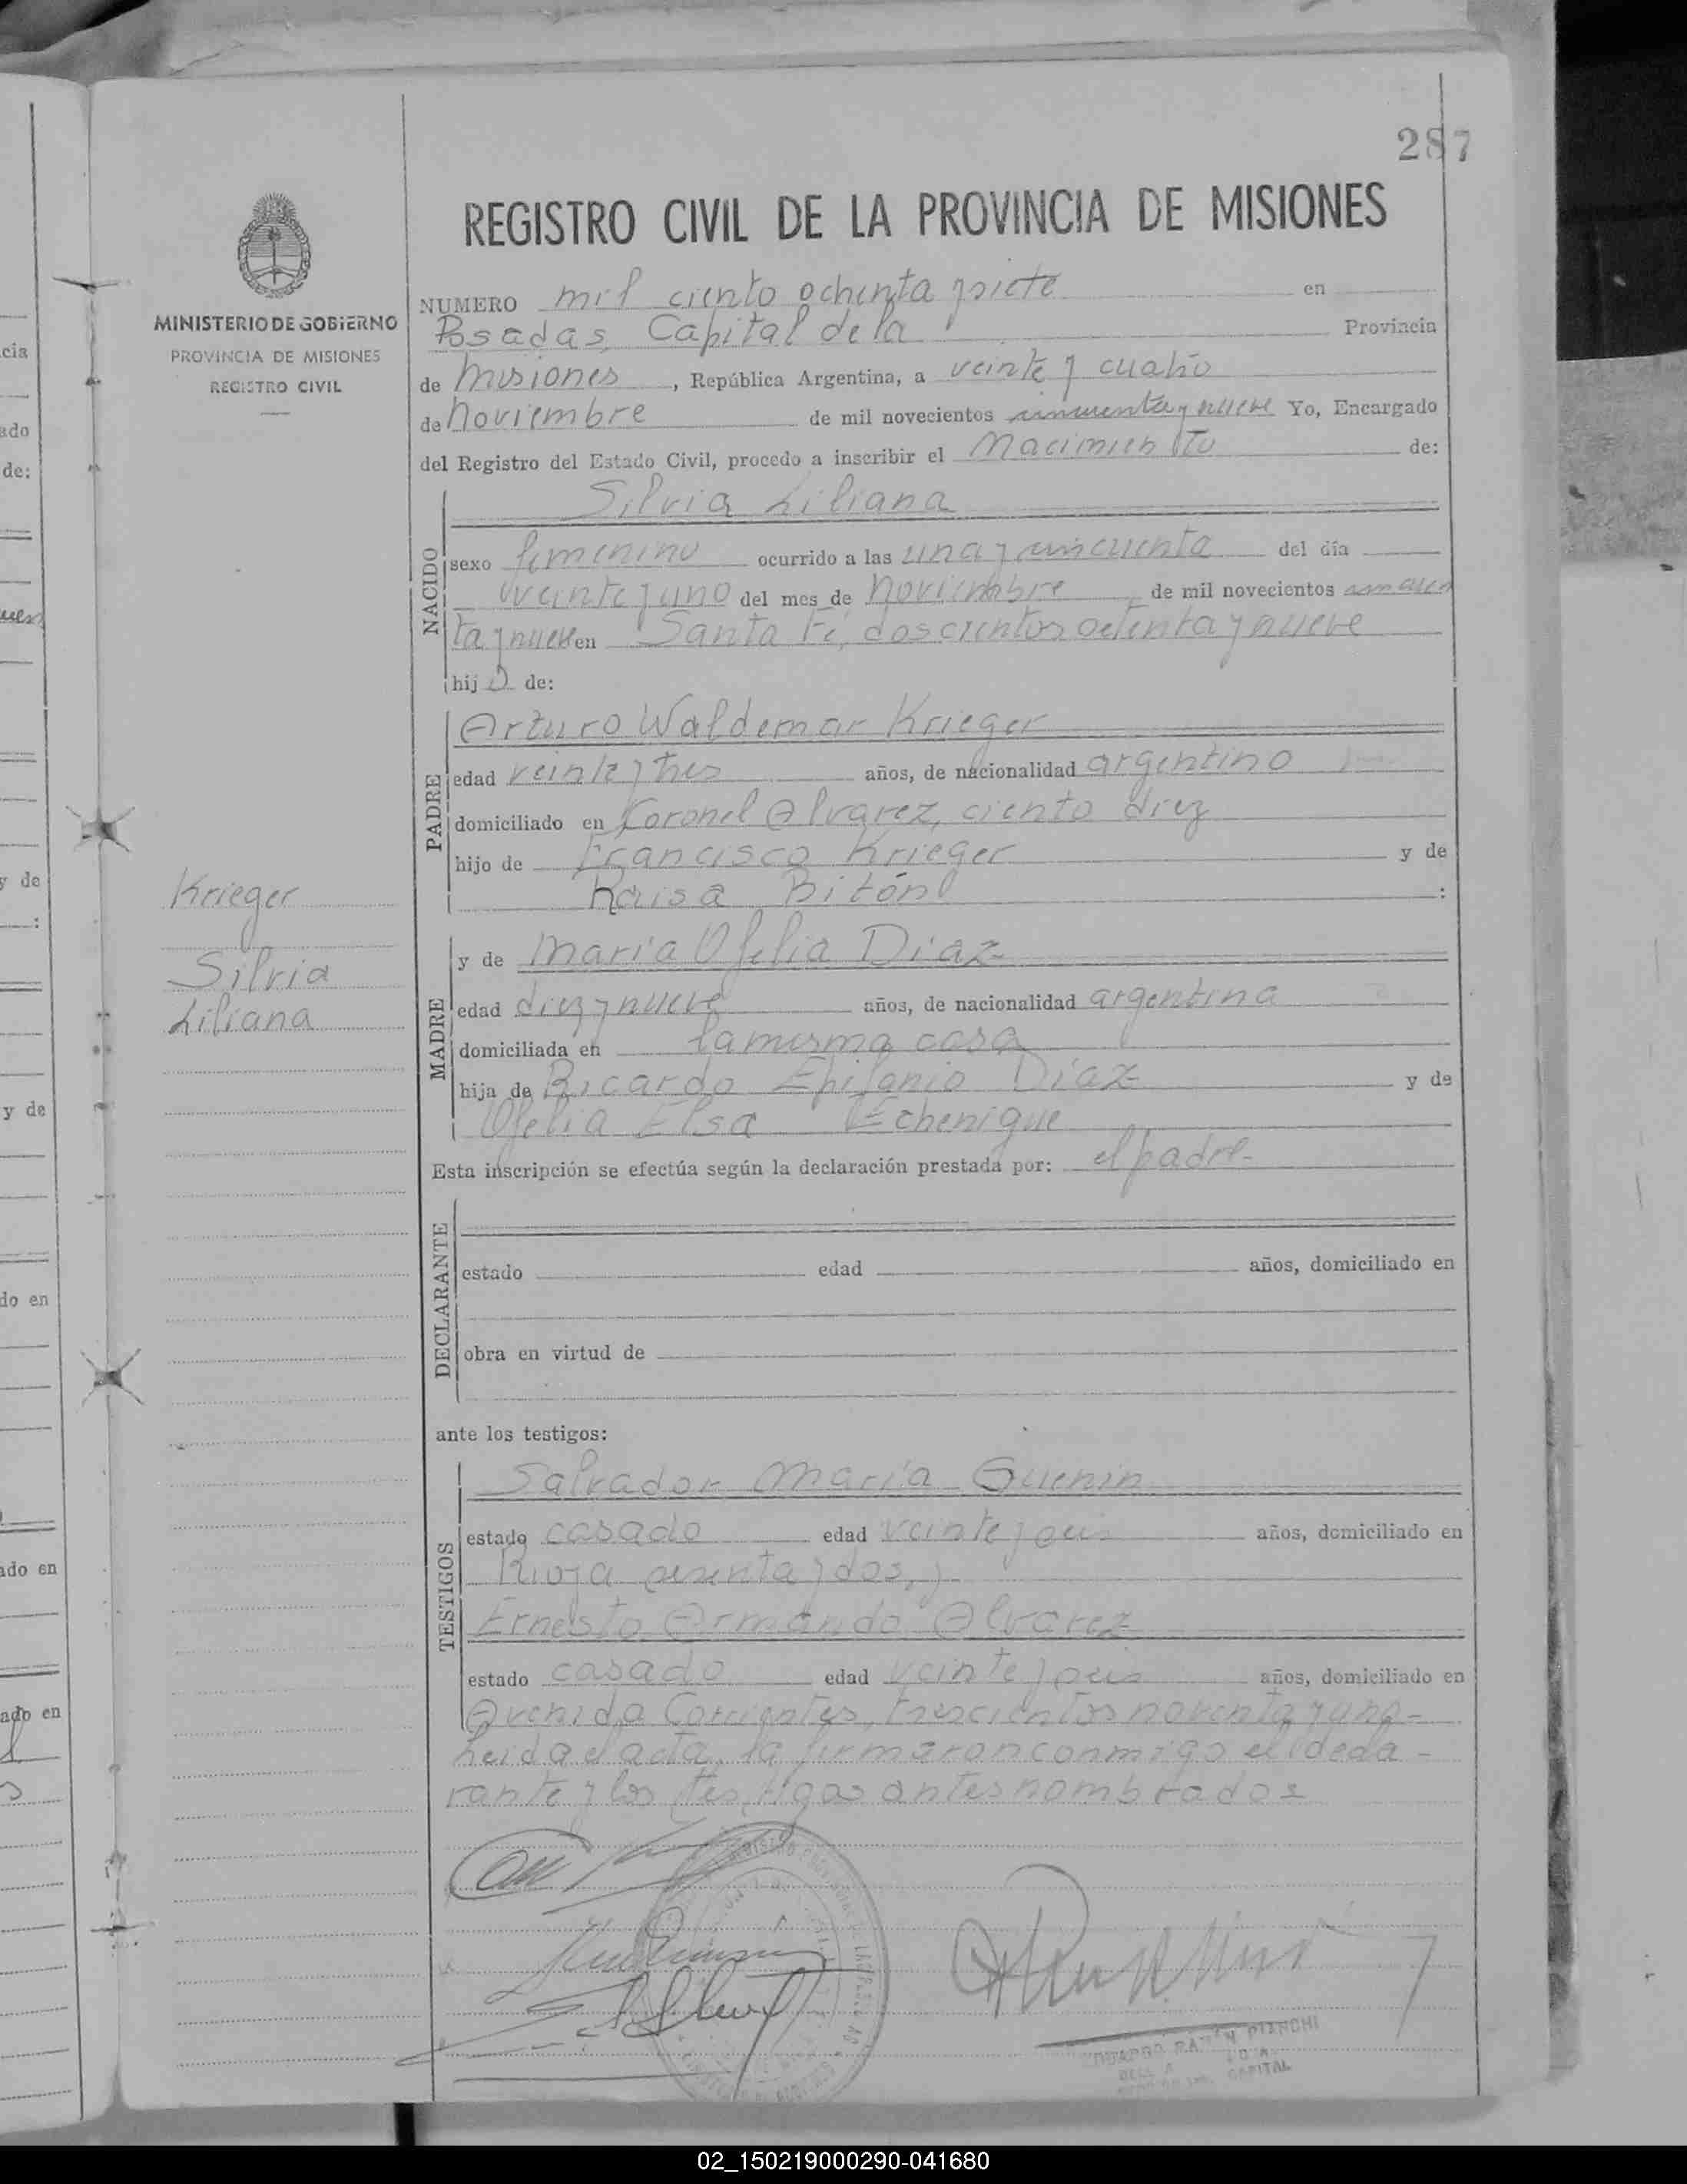 287
REGISTRO CIVIL DE LA PROVINCIA DE MISIONES
MINISTERIO DE GOBIERNO
PROVINCIA DE MISIONES
REGISTRO CIVIL
NUMERO mil ciento ochenta y siete en
Posadas, Capital de la Provincia
de Misiones, República Argentina, a veinte y cuatro
de Noviembre de mil novecientos cincuenta y nueve Yo, Encargado
del Registro del Estado Civil, procedo a inscribir el Nacimiento de:
NACIDO
Silvia Liliana
sexo femenino ocurrido a las una y cincuenta del día
veinte y uno del mes de Noviembre de mil novecientos cincuen
ta y nueve en Santa Fé, doscientos setenta y nueve
hija de:
PADRE
Arturo Waldemar Krieger
edad veinte y tres años, de nacionalidad argentino
domiciliado en Coronel Alvarez, ciento diez
hijo de Francisco Krieger y de
Raisa Bitón :
Krieger
Silvia
Liliana
MADRE
y de María Ofelia Díaz
edad diez y nueve años, de nacionalidad argentina
domiciliada en la misma casa
hija de Ricardo Epifanio Díaz y de
Ofelia Elsa Echenique
Esta inscripción se efectúa según la declaración prestada por: el padre
DECLARANTE
estado edad años, domiciliado en
obra en virtud de
ante los testigos:
TESTIGOS
Salvador María Guenin
estado casado edad veinte y seis años, domiciliado en
Rioja sesenta y dos, y
Ernesto Armando Alvarez
estado casado edad veinte y seis años, domiciliado en
Avenida Corrientes, trescientos noventa y uno-
Leida el acta, la firmaron conmigo el decla-
rante y los testigos antes nombrados
CAPITAL
cia
ado
de:
y de
:
y de
do en
ado en
ado en
02_150219000290-041680